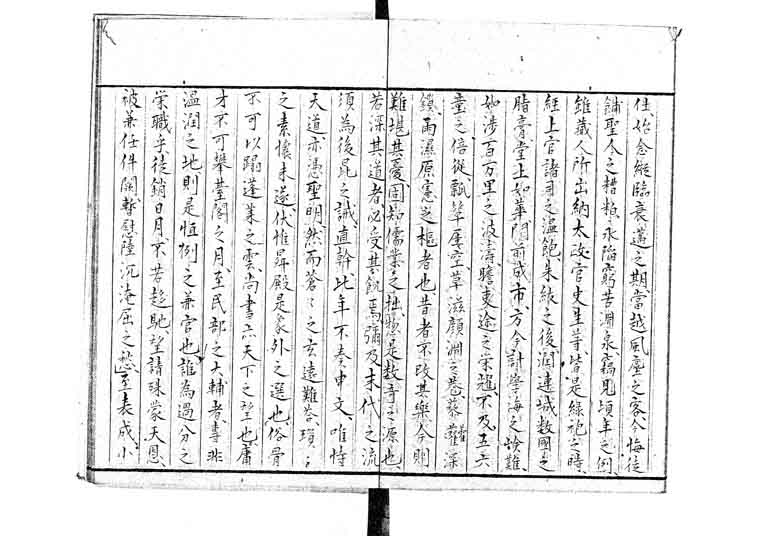 任、始念縦臨衰邁之期、當越風塵之客、今悔徒
鋪聖人之糟粕、永陷窮苦淵泉、竊見頃年之例、
雖藏人所出納太政官史生等、皆是緑袍之時、
経上官諸司之温飽、朱紱之後、潤連城数國之
脂膏、堂上如華、門前成市、方今計學海之艱難、
如渉百万里之波濤、瞻夷途之栄耀、不及五六
輩之倍従、瓢箪屡空、草滋顔淵之巷、藜藿深
鎖、雨濕原憲之樞者也、昔者不改其楽、今則
難堪其憂、固知儒業之拙物、是数奇之源也、
若深其道者、必受其飢焉、彌及末代之流
須為後昆之誡、直幹比年不奏申文、唯恃
天道、亦憑聖明、然而蒼〻之玄遠難答、瑣〻
之素懐未遂、伏惟昇殿是象外之選也、俗骨
不可以蹋蓬莱之雲、尚書亦天下之望也、庸
才不可攀臺閣之月、至民部之大輔者、寿非
温潤之地、則是恒例之兼官也、誰為過分之
栄職乎、徒銷日月、奈若趨馳、望請殊蒙天恩、
被兼任件闕、暫慰陸沉淹屈之愁、至表成小